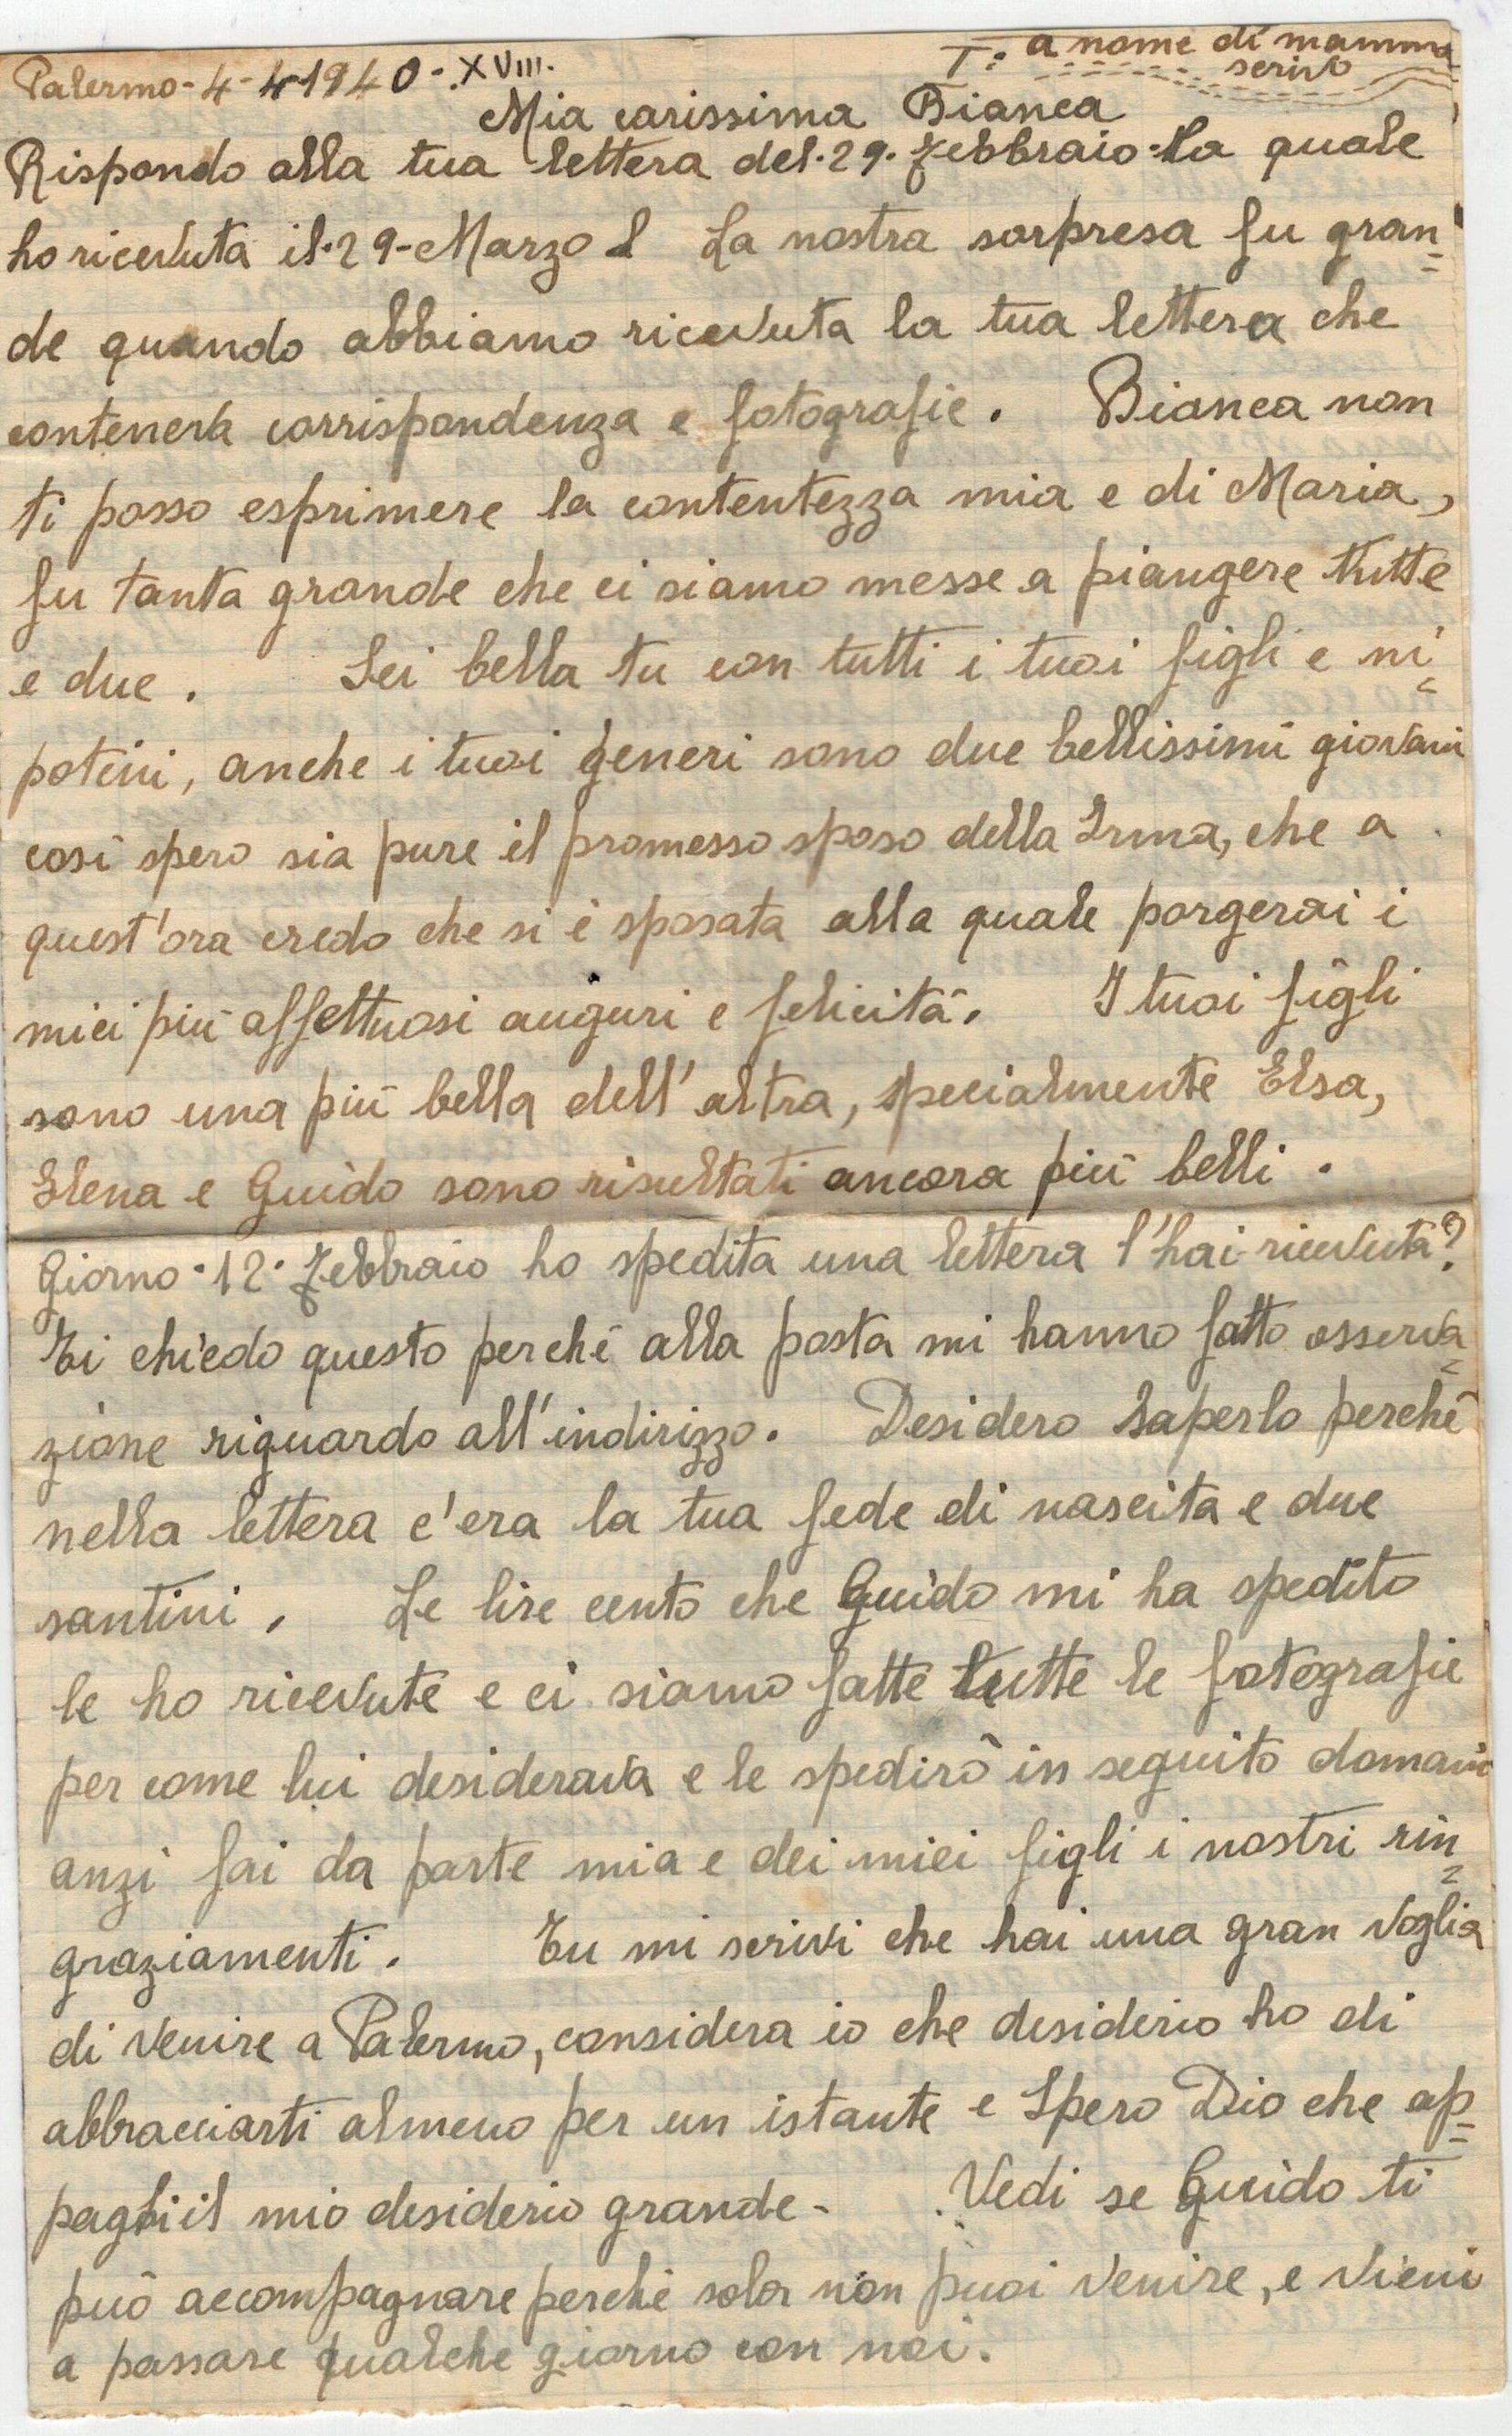 Palermo - 4 - 4 - 1940 - XVIII.
T: a nome di mamma
scrivo
Mia carissima Bianca
Rispondo alla tua lettera del . 29 . Febbraio - la quale
ho ricevuta il . 29 - Marzo La nostra sorpresa fu gran=
de quando abbiamo ricevuta la tua lettera che
conteneva corrispondenza e fotografie . Bianca non
ti posso esprimere la contentezza mia e di Maria,
fu tanta grande che ci siamo messe a piangere tutte
e due . Sei bella tu con tutti i tuoi figli e ni=
potini, anche i tuoi generi sono due bellissimi giovani
così spero sia pure il promesso sposo della Irma, che a
quest'ora credo che si è sposata alla quale porgerai i
miei più affettuosi auguri e felicità. I tuoi figli
sono una più bella dell'altra, specialmente Elsa,
Elena e Guido sono risultati ancora più belli .
Giorno . 12 . Febbraio ho spedita una lettera l'hai ricevuta?
Ti chiedo questo perché alla posta mi hanno fatto osserva=
zione riguardo all'indirizzo. Desidero saperlo perché
nella lettera c'era la tua fede di nascita e due
santini . Le lire cento che Guido mi ha spedito
le ho ricevute e ci siamo fatte tutte le fotografie
per come lui desiderava e le spedirò in seguito domani
anzi fai da parte mia e dei miei figli i nostri rin=
graziamenti . Tu mi scrivi che hai una gran voglia
di venire a Palermo, considera io che desiderio ho di
abbracciarti almeno per un istante e spero Dio che ap=
paghi il mio desiderio grande - Vedi se Guido ti
può accompagnare perché sola non puoi venire, e vieni
a passare qualche giorno con noi.